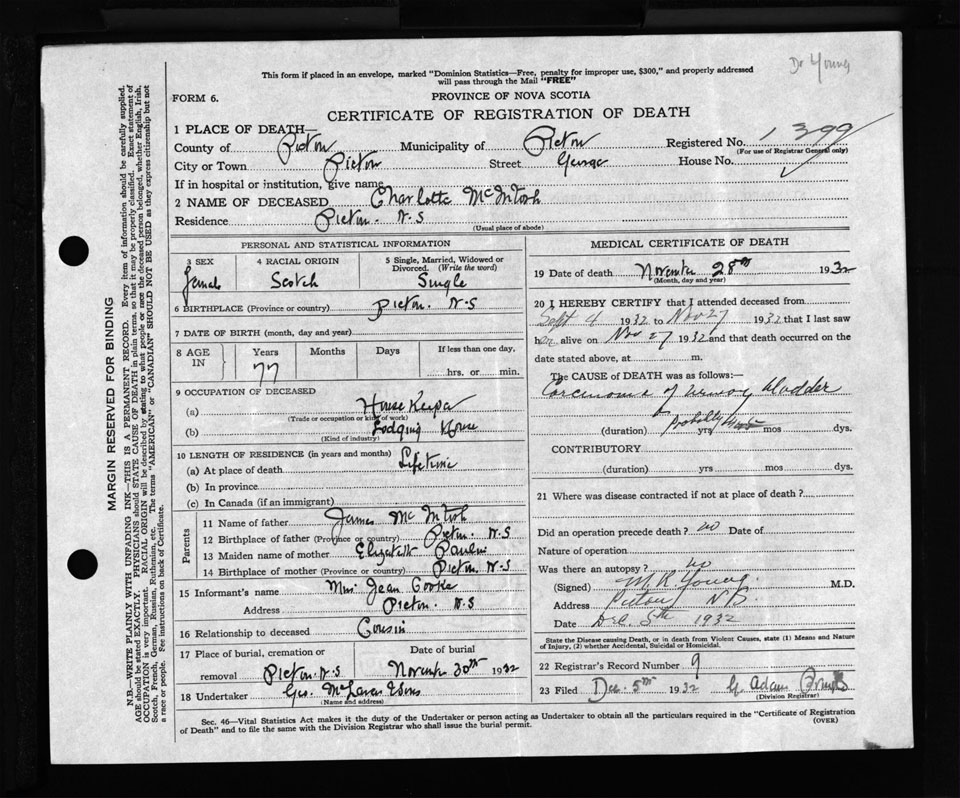 Dr Young
This form if placed in an envelope, marked "Dominion Statistics—Free, penalty for improper use, $300," and properly addressed
will pass through the Mail "FREE"
FORM 6.
PROVINCE OF NOVA SCOTIA
CERTIFICATE OF REGISTRATION OF DEATH
1 PLACE OF DEATH—
County of Pictou Municipality of Pictou Registered No. 1399
(For use of Registrar General only)
City or Town Pictou Street George House No.
If in hospital or institution, give name
2 NAME OF DECEASED Charlotte McIntosh
Residence Pictou. N.S
(Usual place of abode)
PERSONAL AND STATISTICAL INFORMATION
3 SEX 4 RACIAL ORIGIN 5 Single, Married, Widowed or
Divorced. (Write the word)
Female Scotch Single
6 BIRTHPLACE (Province or country) Pictou. N.S
7 DATE OF BIRTH (month, day and year)
8 AGE IN Years Months Days If less than one day,
77 hrs. or min.
9 OCCUPATION OF DECEASED
(a) House Keeper
(Trade or occupation or kind of work)
(b) Lodging House
(Kind of industry)
10 LENGTH OF RESIDENCE (in years and months)
(a) At place of death Lifetime
(b) In province
(c) In Canada (if an immigrant)
Parents
11 Name of father James McIntosh
12 Birthplace of father (Province or country) Pictou. N.S
13 Maiden name of mother Elizabeth
14 Birthplace of mother (Province or country) Pictou N.S
15 Informant's name Mrs Jean Cooke
Address Pictou. N.S
16 Relationship to deceased Cousin
17 Place of burial, cremation or Date of burial
removal Pictou. N.S November 30th 1932
18 Undertaker Geo. McLaren & Sons
(Name and address)
MEDICAL CERTIFICATE OF DEATH
19 Date of death November 28th 1932
(Month, day and year)
20 I HEREBY CERTIFY that I attended deceased from
Sept 4 1932 to Nov 27 1932 that I last saw
her alive on Nov 27 1932 and that death occurred on the
date stated above, at m.
The CAUSE of DEATH was as follows:—
Carcinoma of urinary bladder
Probably
(duration) yrs mos dys.
CONTRIBUTORY
(duration) yrs mos dys.
21 Where was disease contracted if not at place of death?
Did an operation precede death? no Date of
Nature of operation
Was there an autopsy? no
(Signed) M.R. Young. M.D.
Address Pictou N.S.
Date Dec. 5th 1932
State the Disease causing Death, or in death from Violent Causes, state (1) Means and Nature
of Injury, (2) whether Accidental, Suicidal or Homicidal.
22 Registrar's Record Number 9
23 Filed Dec. 5th 1932 G. Adam
(Division Registrar)
Sec. 46—Vital Statistics Act makes it the duty of the Undertaker or person acting as Undertaker to obtain all the particulars required in the "Certificate of Registration
of Death" and to file the same with the Division Registrar who shall issue the burial permit. (OVER)
MARGIN RESERVED FOR BINDING
N.B.—WRITE PLAINLY WITH UNFADING INK—THIS IS A PERMANENT RECORD. Every item of information should be carefully supplied.
AGE should be stated EXACTLY. PHYSICIANS should STATE CAUSE OF DEATH in plain terms, so that it may be properly classified. Exact statement of
OCCUPATION is very important. RACIAL ORIGIN will be described by stating to what people or race the deceased person belonged, whether English, Irish,
Scotch, French, German, Russian, Ruthenian, etc. The terms "AMERICAN" or "CANADIAN" SHOULD NOT BE USED as they express citizenship but not
a race or people. Fee instructions on back of Certificate.